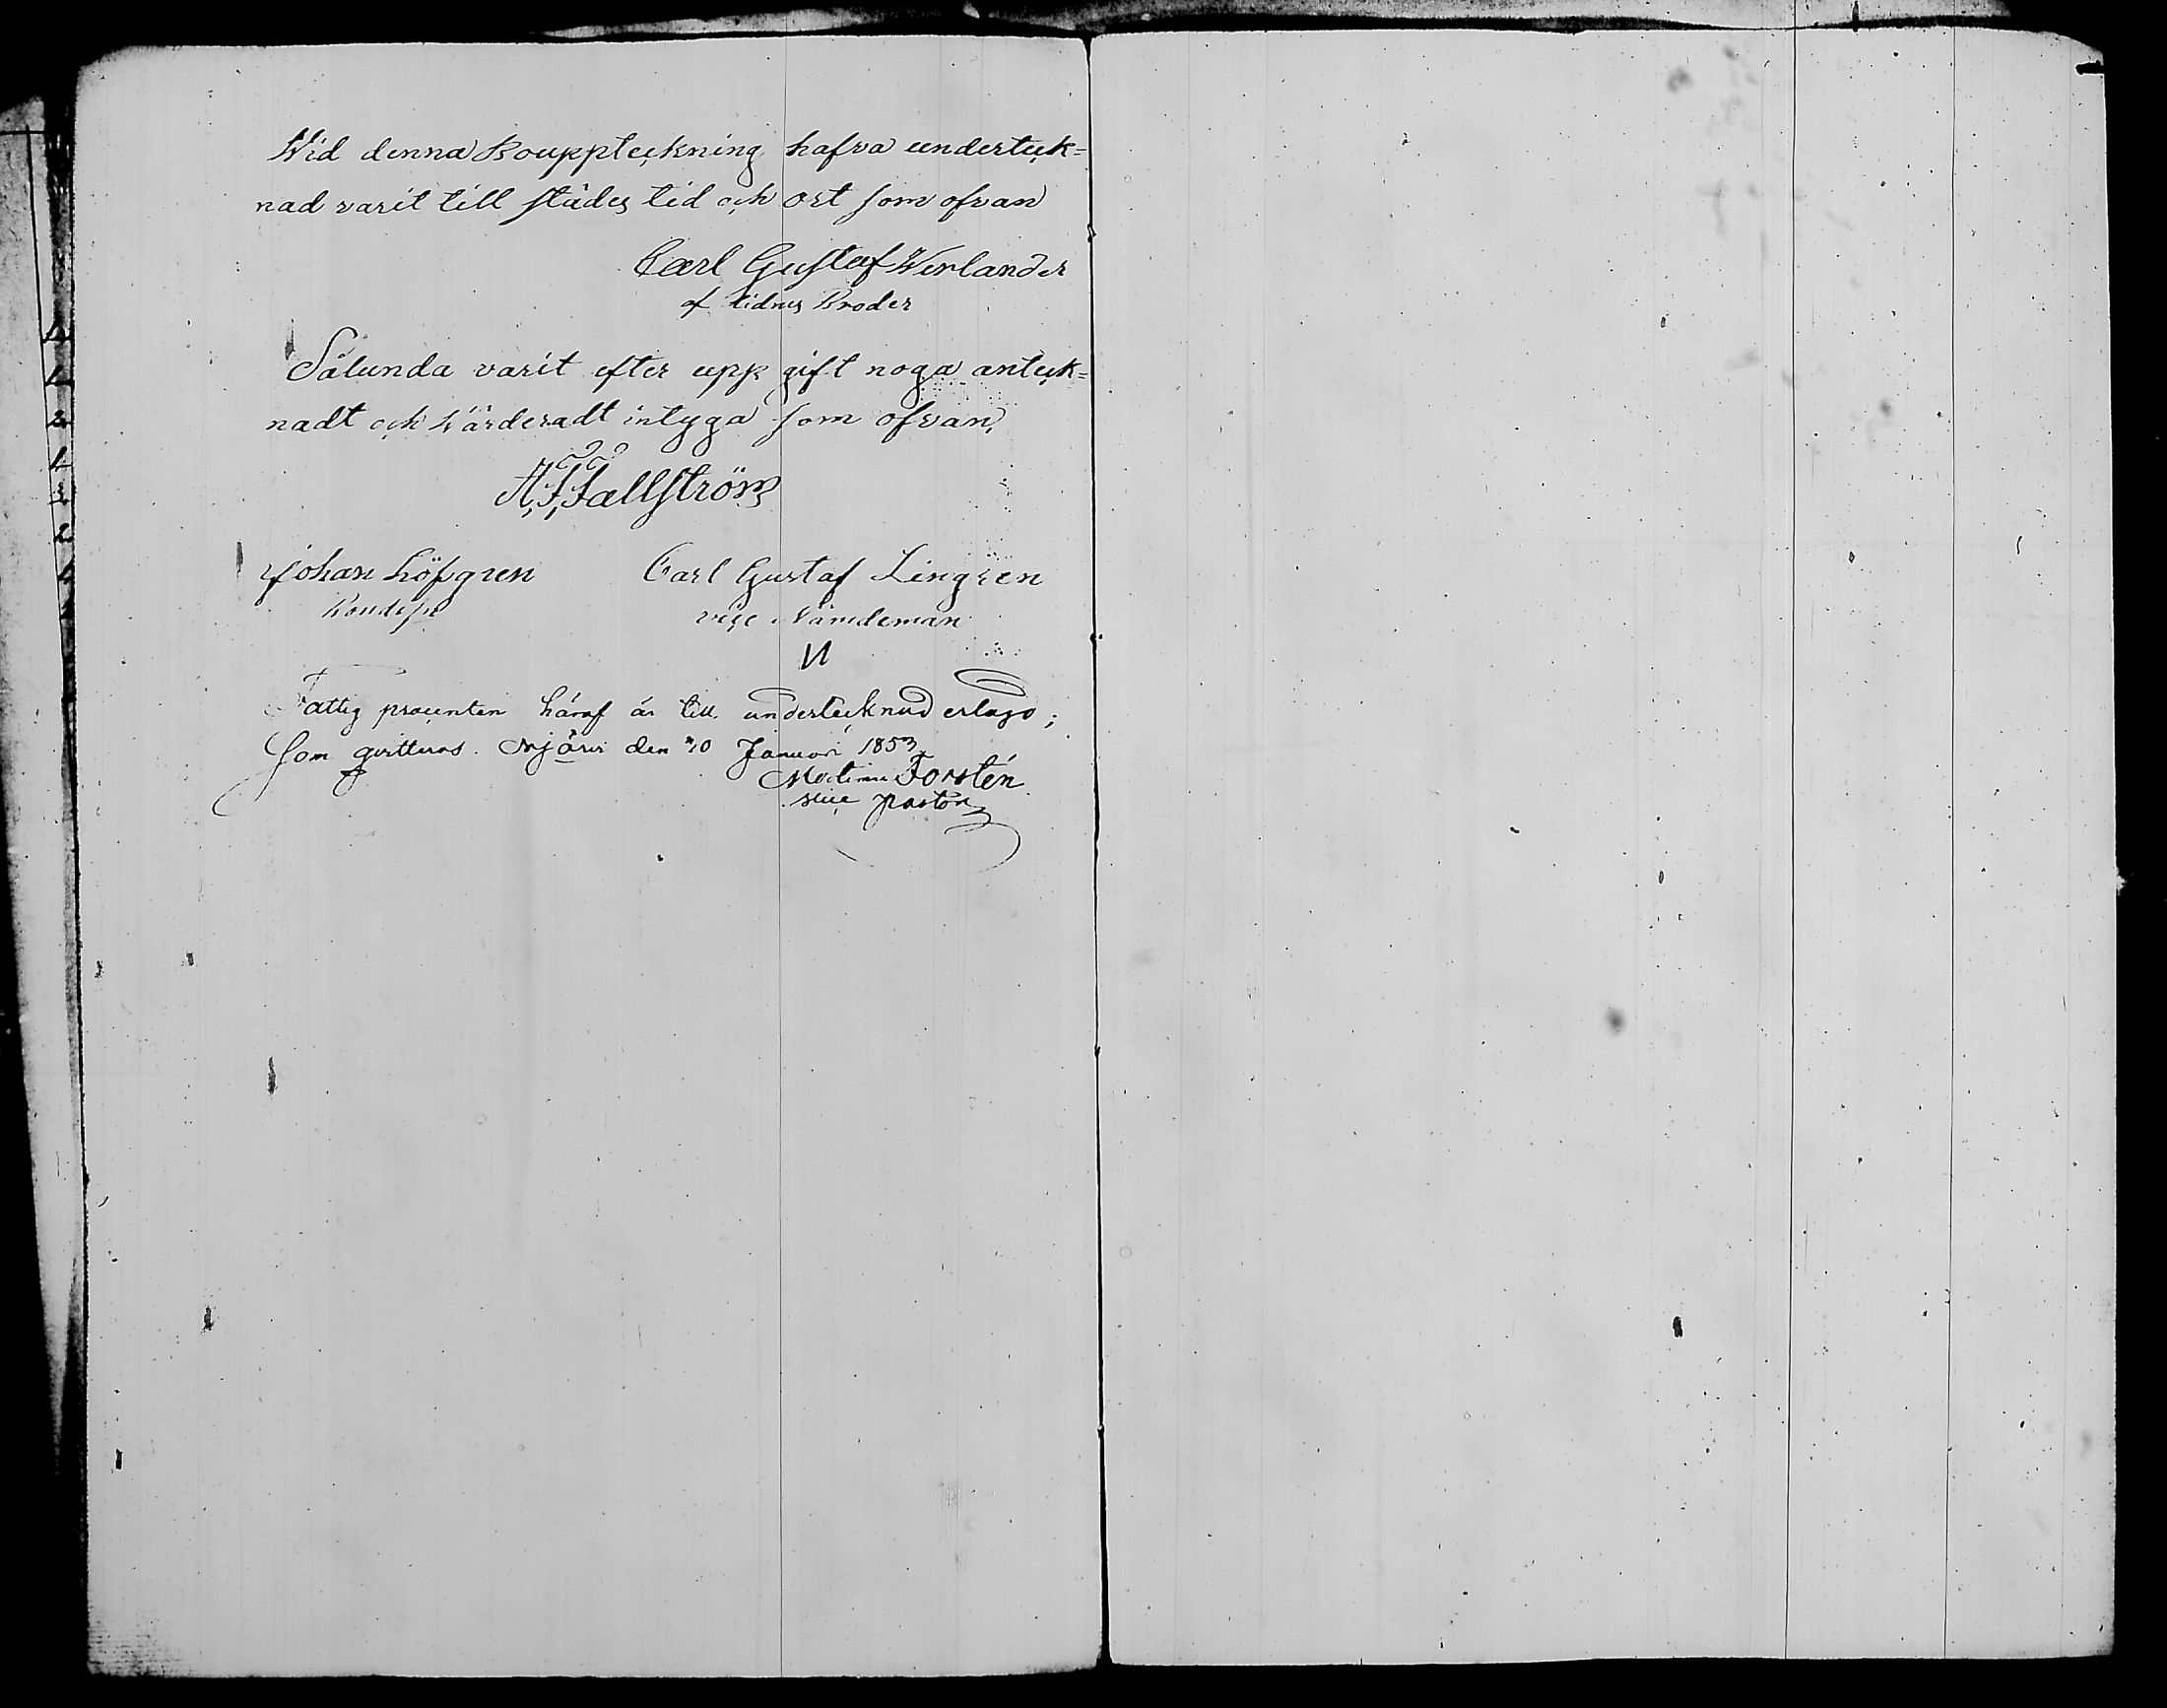 Wid denna Bouppteckning hafva underteck=
nad varit till städes tid och ort som ofvan
Carl Gustaf Werlander
af lidnes Broder
Sålunda varit efter upp gift noga anteck=
nadt och värderadt intyga som ofvan,
A, F, Fallström
Johan Löfgren Carl Gustaf Lingren
vice Nämdeman
Fattig procenten häraf är till undertecknad erlagd;
Som qvitteras. den 20 Januari 1853
Forstén
vice pastor